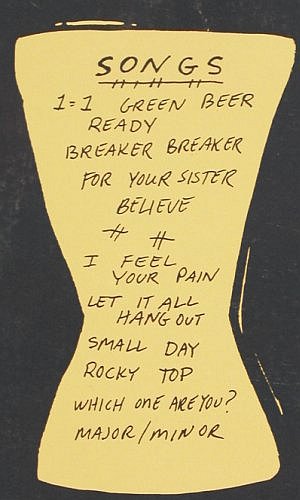 SONGS
1=1 GREEN BEER
READY
BREAKER BREAKER
FOR YOUR SISTER
BELIEVE
# #
I FEEL
YOUR PAIN
LET IT ALL
HANG OUT
SMALL DAY
ROCKY TOP
WHICH ONE ARE YOU?
MAJOR/MINOR